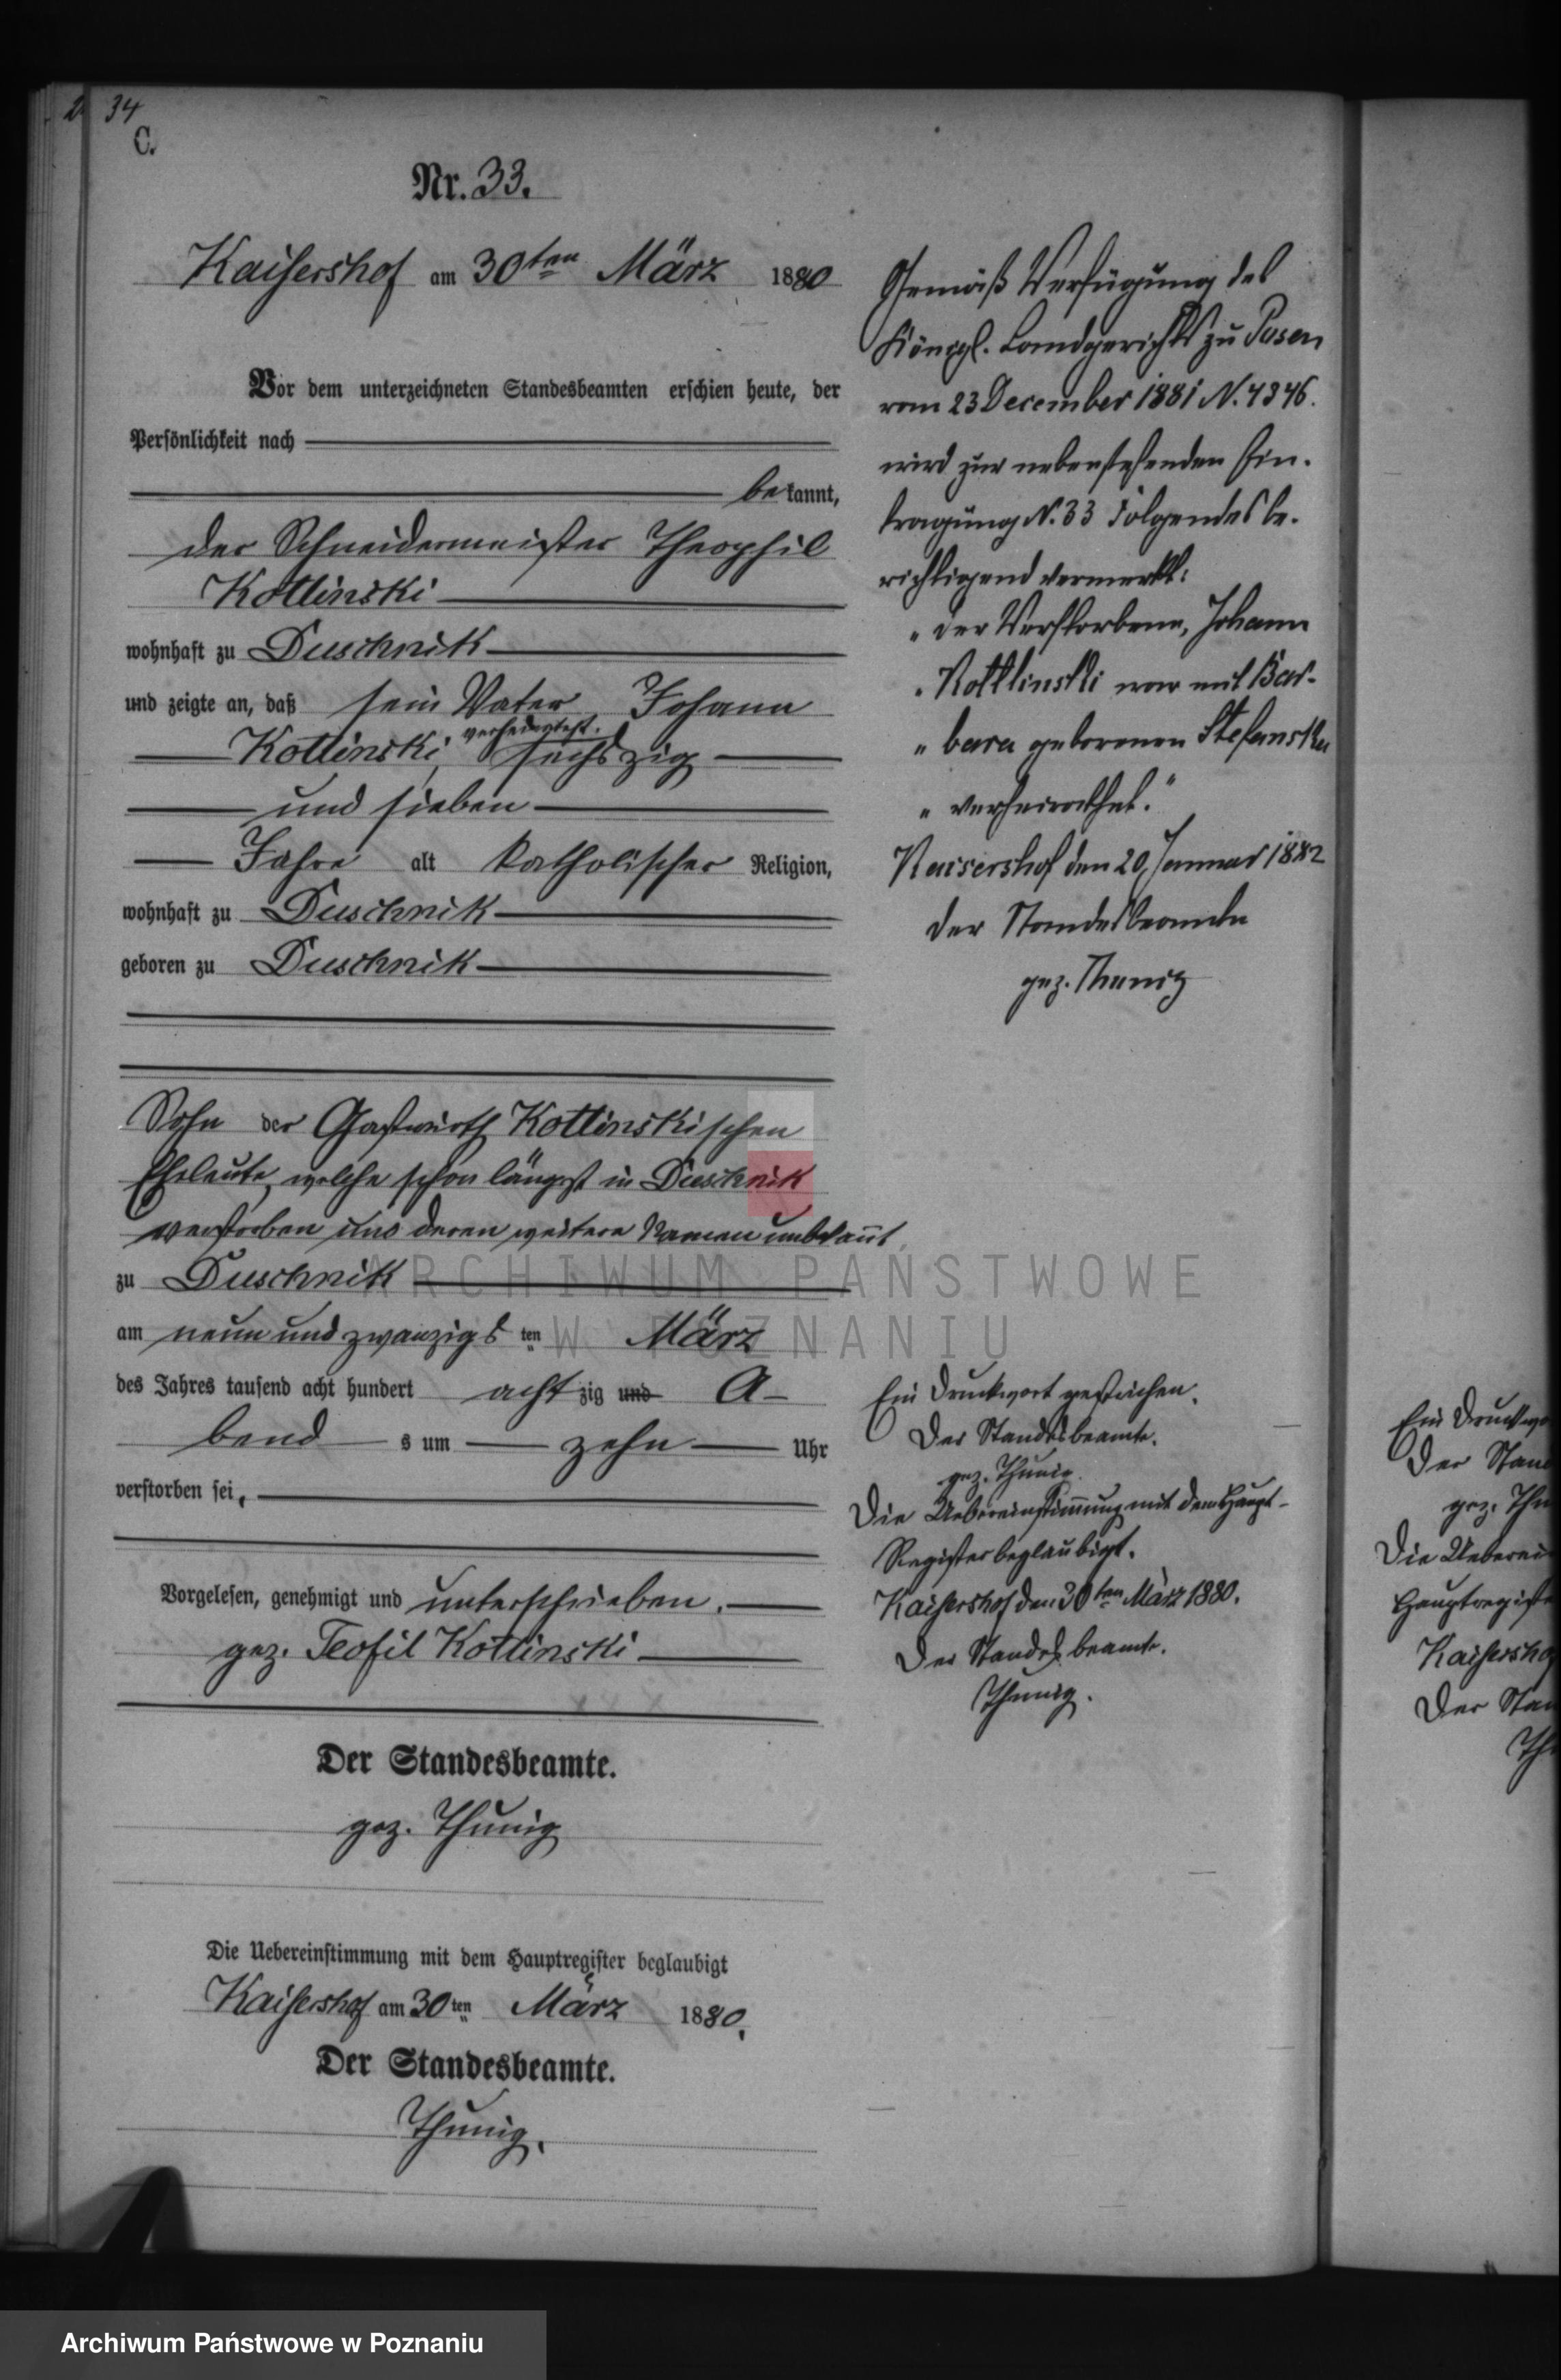 2
34
C.
Nr. 33.
Kaisershof am 30ten März 1880
Vor dem unterzeichneten Standesbeamten erschien heute, der
Persönlichkeit nach
bekannt,
der Schneidermeister Theophil
Kotlinski
wohnhaft zu Duschnik
und zeigte an, daß sein Vater Johann
verheirathet.
Kotlinski, sechszig
und sieben
Jahre alt katholischer Religion,
wohnhaft zu Duschnik
geboren zu Duschnik
Sohn der Gastwirth Kotlinskischen
Eheleute, welche schon längst in Duschnik
verstorben und deren weitere Namen unbekannt
zu Duschnik
am neun und zwanzigs ten März
des Jahres tausend acht hundert acht zig und A-
bend s um zehn Uhr
verstorben sei,
Vorgelesen, genehmigt und unterschrieben.
gez. Teofil Kotlinski
Der Standesbeamte.
gez. Thunig
Die Uebereinstimmung mit dem Hauptregister beglaubigt
Kaisershof am 30ten März 1880.
Der Standesbeamte.
Thunig.
Gemäß Verfügung des
Königl. Landgerichts zu Posen
vom 23 December 1881 N. 4346.
wird zur nebenstehenden Ein-
tragung N. 33 Folgendes be-
richtigend vermerkt:
"der Verstorbene, Johann
"Kottlinski war mit Bar-
"bara geborenen Stefanska
"verheirathet."
Kaisershof den 20 Januar 1882
der Standesbeamte
gez. Thunig
Ein Druckwort gestrichen.
Der Standesbeamte.
gez. Thunig.
Die Uebereinstimmung mit dem Haupt-
Register beglaubigt.
Kaisershof den 30ten März 1880.
Der Standesbeamte.
Thunig.
Ein Druckwo
Der Stan
gez. Thu
Die Ueberei
Hauptregiste
Kaisersho
Der Stan
Th
ARCHIWUM PAŃSTWOWE
W POZNANIU
Archiwum Państwowe w Poznaniu